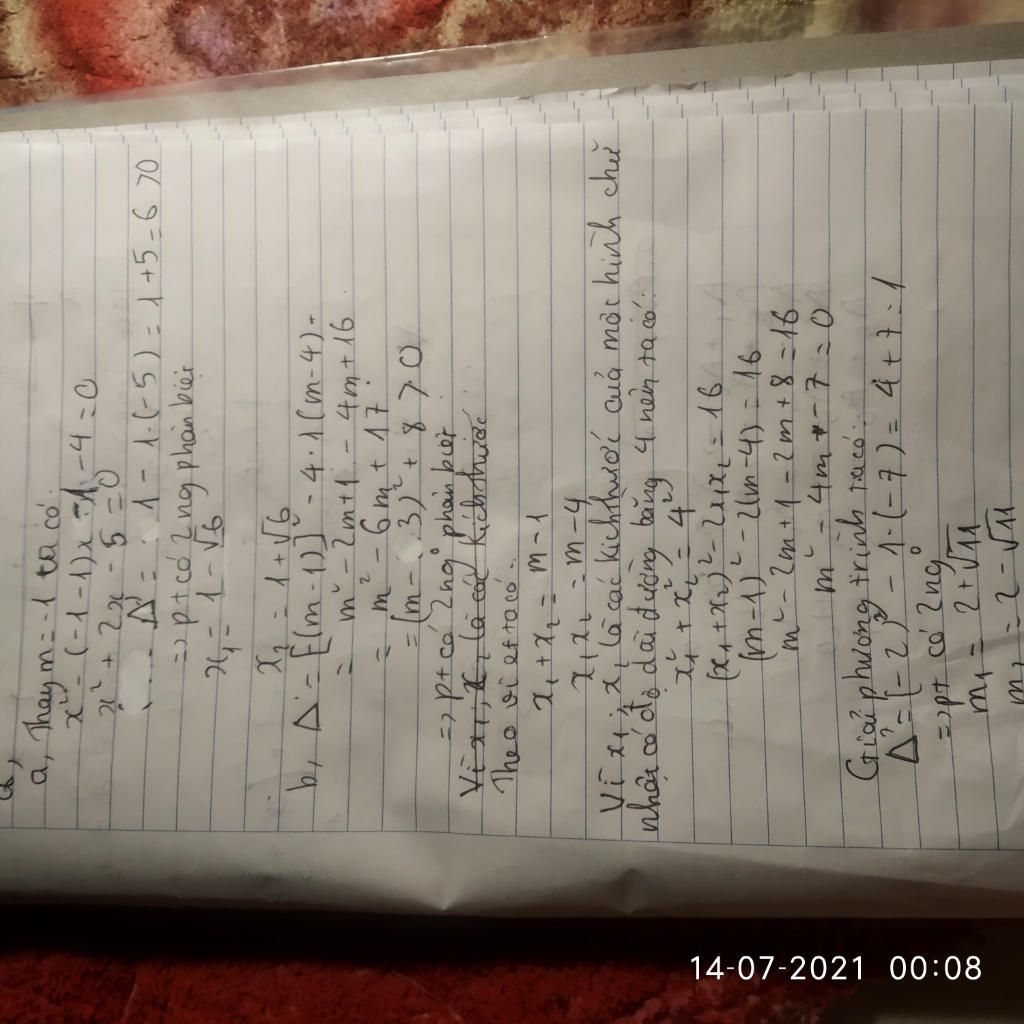 a, Thay m = -1 ta có
x² - (-1-1)x -1 -4 = 0
x² + 2x - 5 = 0
Δ' = 1 - 1.(-5) = 1+5 = 6 >0
=> pt có 2 ng phân biệt
x₁ = 1 - √6
x₂ = 1 + √6
b, Δ = [(m-1)]² - 4.1(m-4) -
= m² - 2m+1 - 4m + 16
= m² - 6m + 17
= (m-3)² + 8 > 0
=> pt có 2 ng⁰ phân biệt
Vì x₁, x₂ là các kích thước
Theo vi et ta có.
x₁ + x₂ = m - 1
x₁x₂ = m - 4
Vì x₁; x₂ là các kích thước của một hình chữ
nhật có độ dài đường bằng 4 nên ta có:
x₁² + x₂² = 4²
(x₁+x₂)² - 2x₁x₂ = 16
(m-1)² - 2(m-4) = 16
m² - 2m + 1 - 2m + 8 = 16
m² - 4m - 7 = 0
Giải phương trình ta có:
Δ' = (-2)² - 1.(-7) = 4 + 7 = 1
=> pt có 2 ng⁰
m₁ = 2 + √11
m₂ = 2 - √11
14-07-2021 00:08